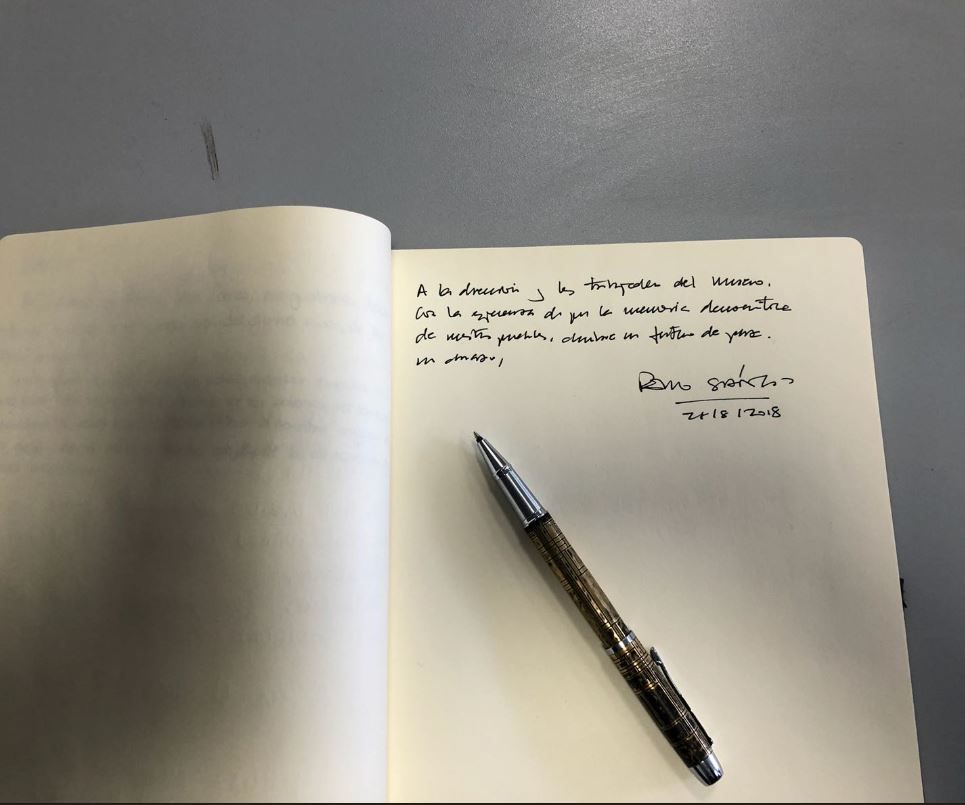 A la dirección y los trabajadores del Museo.
Con la esperanza de que la memoria democrática
de nuestros pueblos, alumbre un futuro de paz.
Un abrazo,
Pedro Sánchez
/8/2018